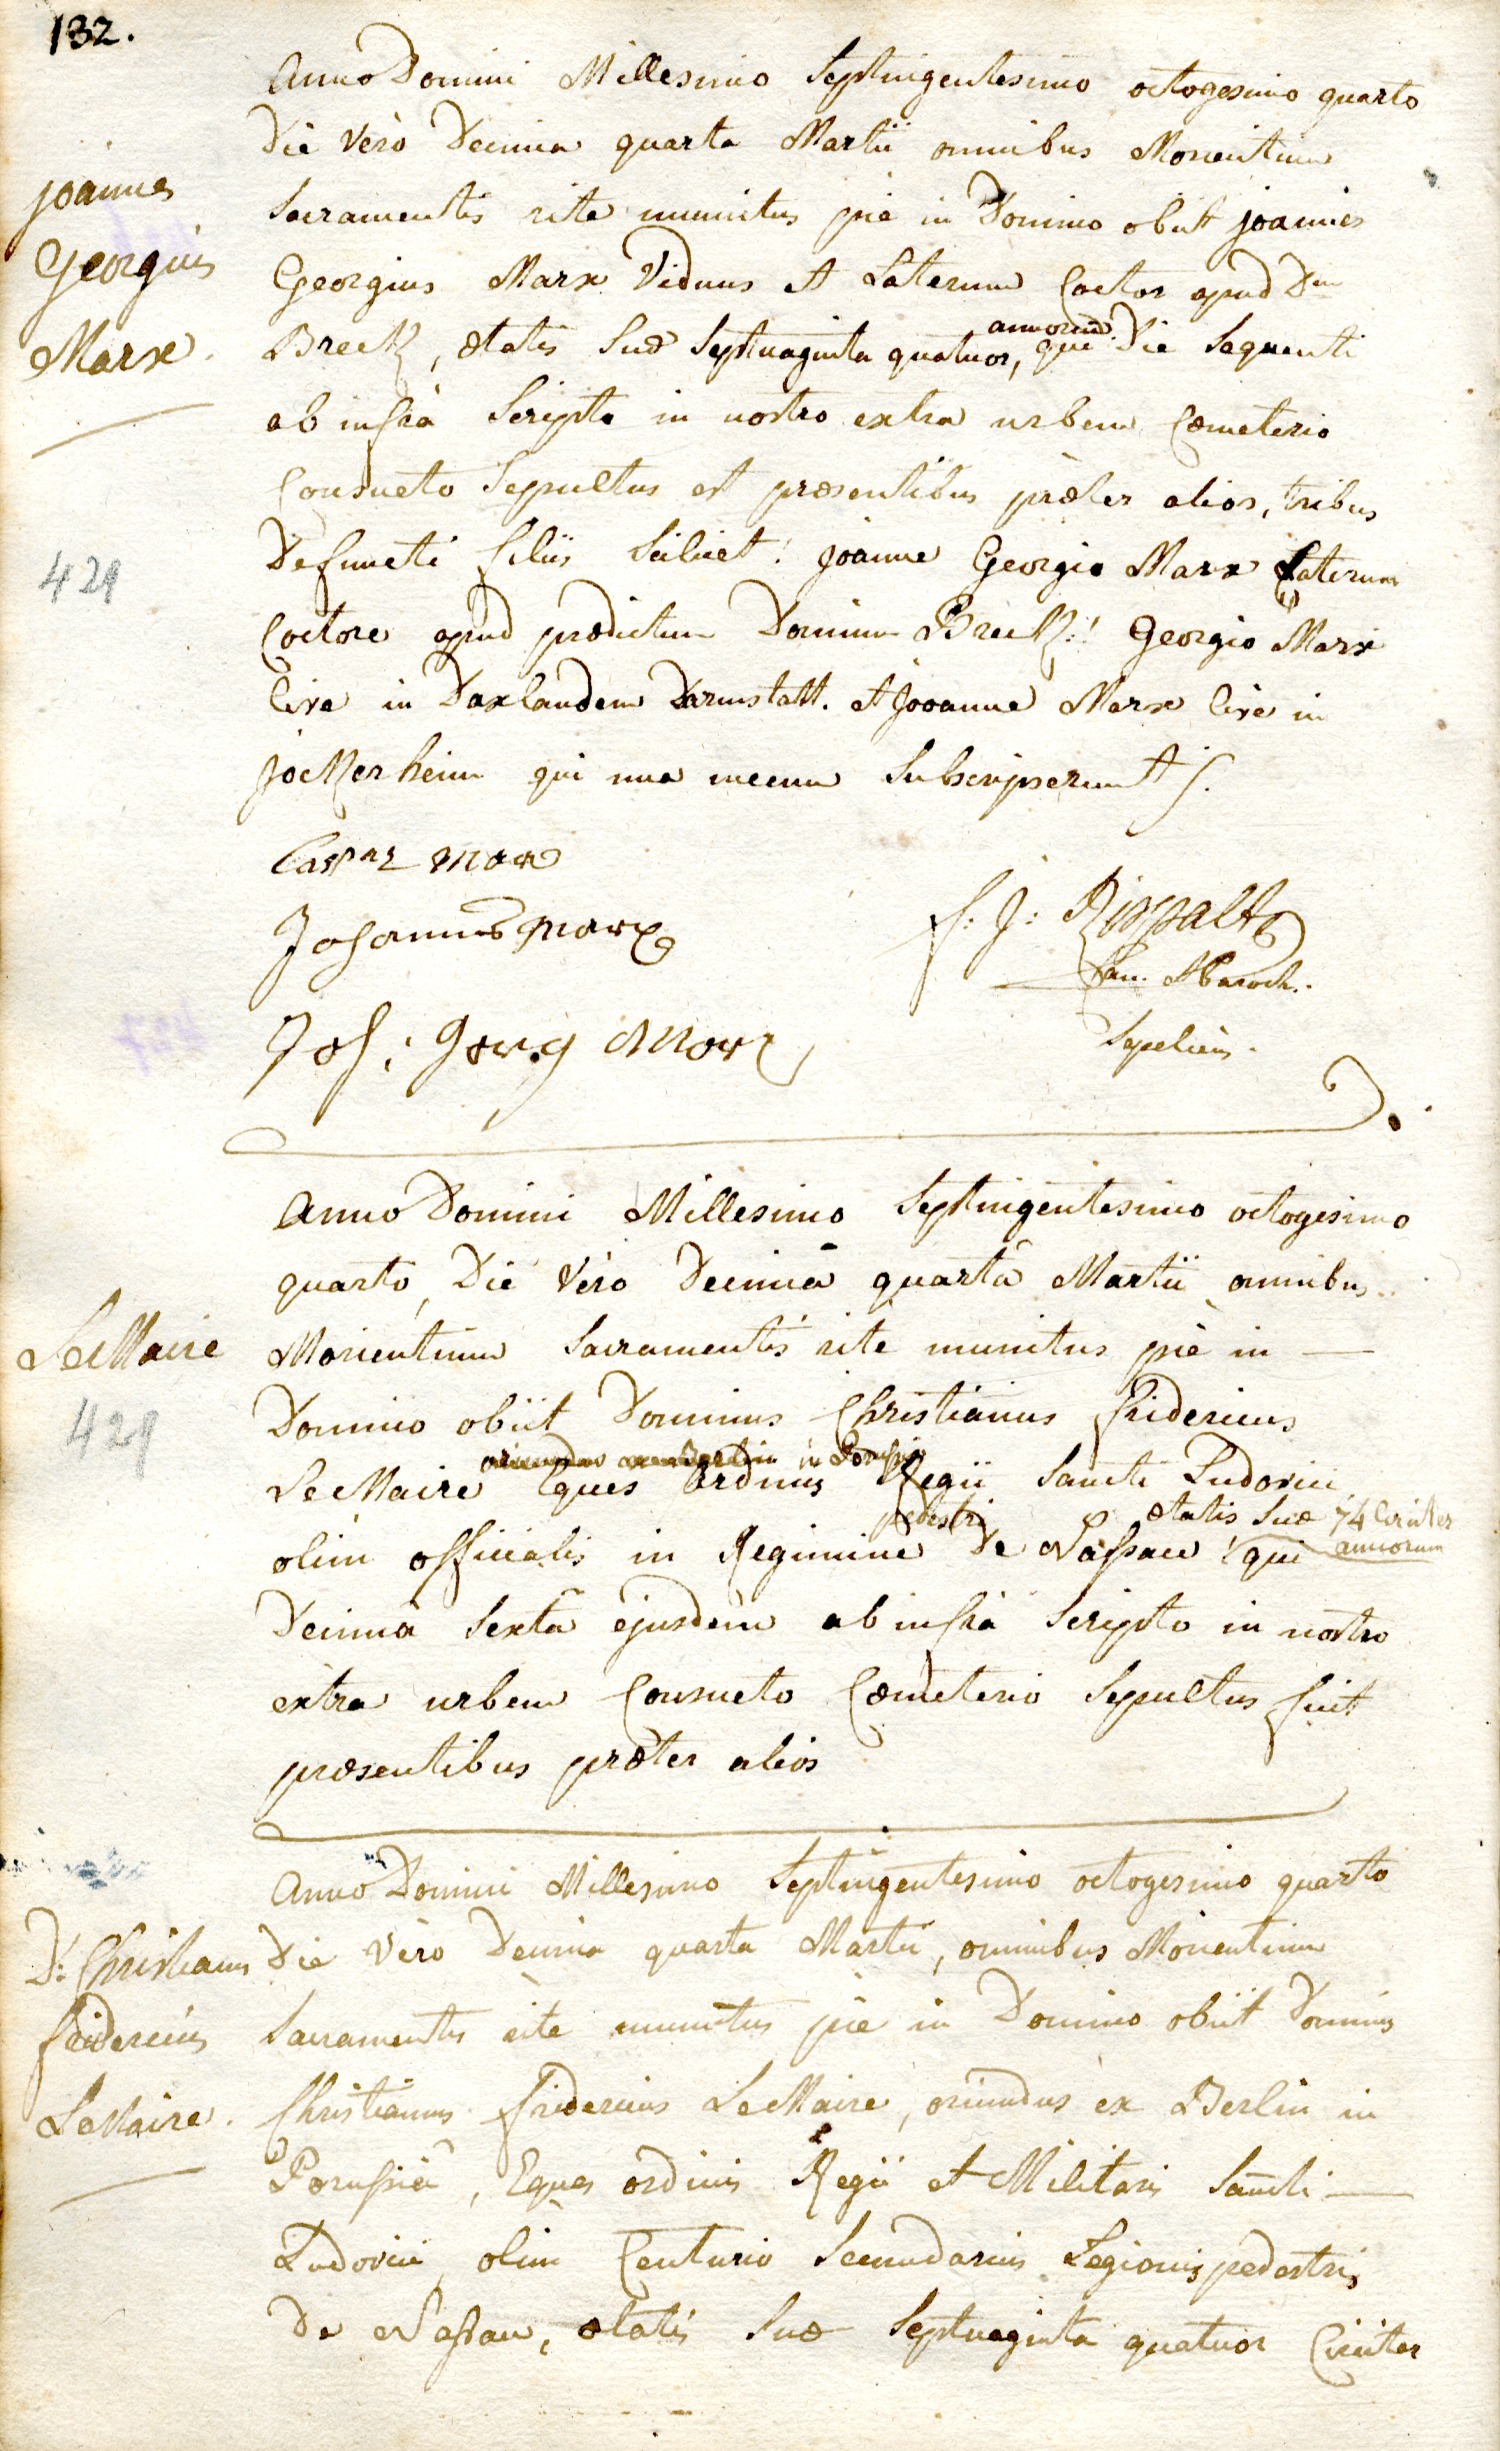 132.
Anno Domini Millesimo Septingentesimo octogesimo quarto
Die Verò Decima quarta Martii omnibus Morientium
Sacramentis rite munitus piè in Domino obiit joannes
Georgius Marx Viduus et Laterum Coctor apud Dnum
Breck, ætatis Suæ Septuaginta quatuor, annorum qui Die Sequenti
ab infrà Scripto in nostro extra urbem Cœmeterio
Consueto Sepultus est præsentibus præter alios, tribus
Defuncti filiis Scilicet: joanne Georgio Marx Laterum
Coctore apud prædictum Dominum Breck:! Georgio Marx
Cive in Daxlanden Darmstatt. et Jooanne Marx Cive in
jockerheim qui una mecum Subscripserunt /.
joannes
Georgius
Marx.
429
Caspar Marx
Johannes Marx
Joh: Georg Marx
f: J: Rippalt
San. Paroch.
Sepeliens.
Anno Domini Millesimo Septingentesimo octogesimo
quarto, Die Vero Decimâ quartâ Martii omnibus
Morientium Sacramentis rite munitus piè in —
Domino obiit Dominus Christianus fridericus
oriundus in Porussia
LeMaire Eques Ordinis Regii Sancti Ludovici
pedestri ætatis Suæ 74 Circiter
olim officialis in Regimine De Nassau qui annorum
Decimâ Sextâ ejusdem ab infrà Scripto in nostro
extra urbem Consueto Cœmeterio Sepultus fuit
præsentibus præter alios
LeMaire
429
Anno Domini Millesimo Septingentesimo octogesimo quarto
Die Vero Decima quarta Martii, omnibus Morientium
Sacramentis rite munitus piè in Domino obiit Dominus
Christianus fridericus LeMaire, oriundus ex Berlin in
Porussiâ, Eques ordinis Regii et Militaris Sancti —
Ludovici olim Centurio Secundarius Legionis pedestris
De Nassau, ætatis Suæ Septuaginta quatuor Circiter
D: Christianus
fridericus
LeMaire.